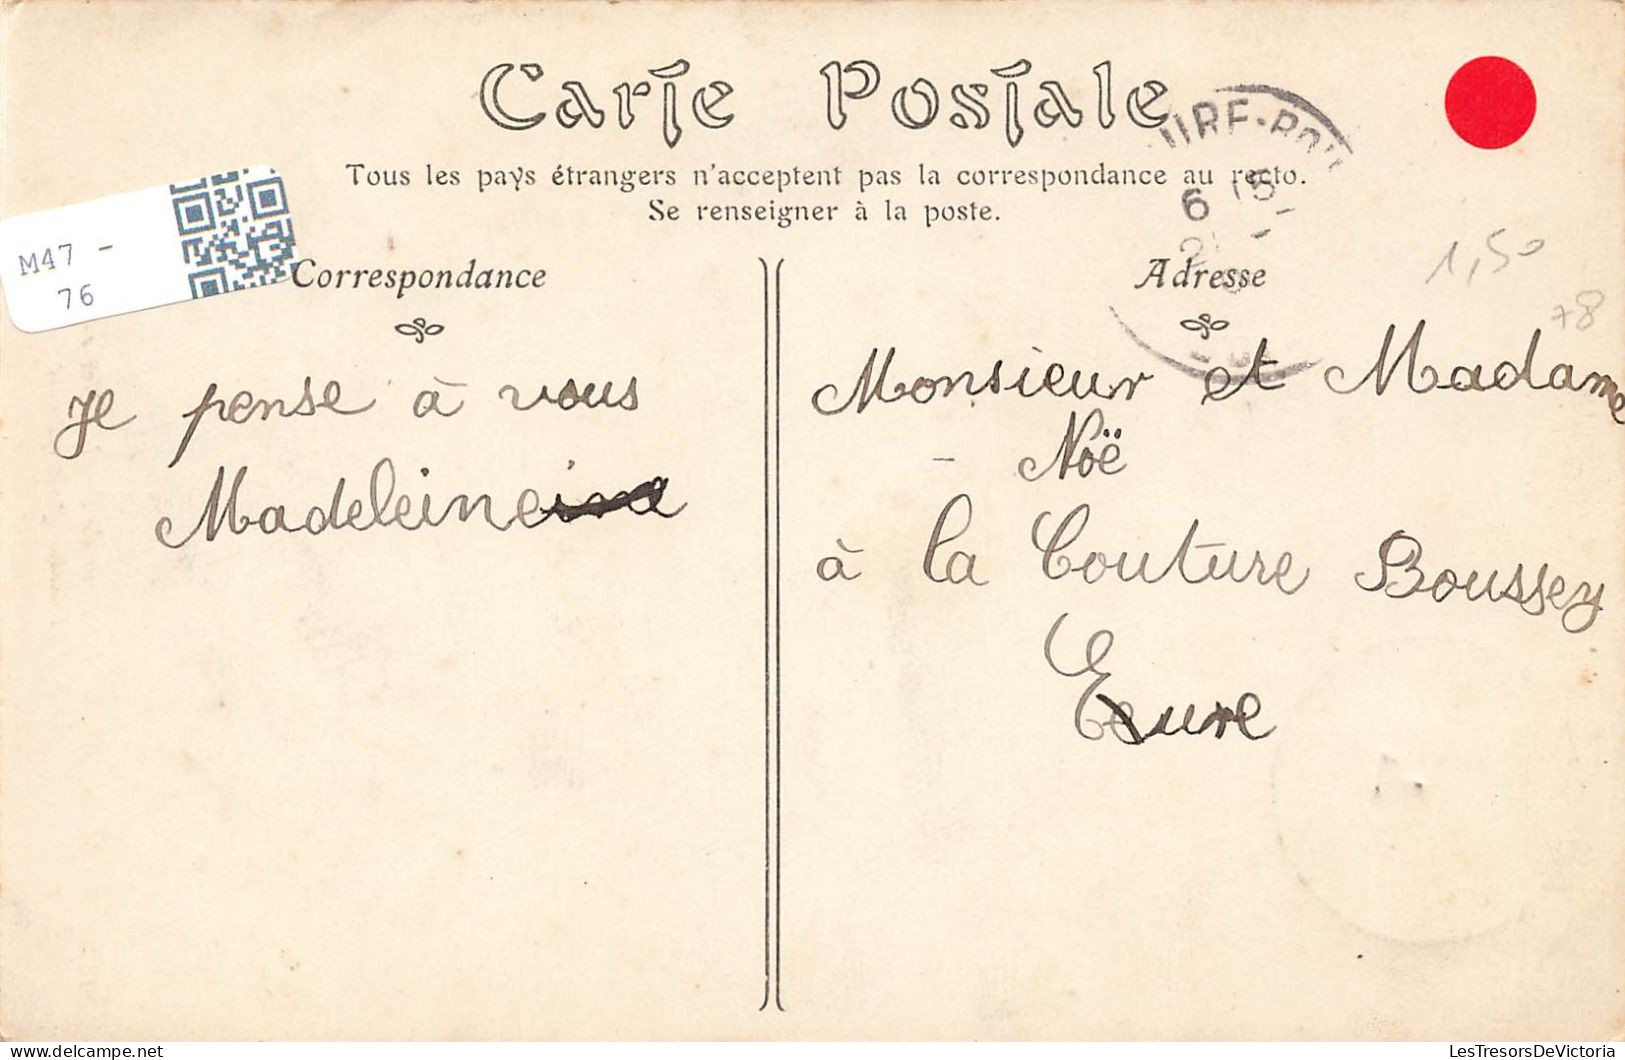 Carte Postale
Tous les pays étrangers n'acceptent pas la correspondance au recto.
Se renseigner à la poste.
M47 -
76
Correspondance
Adresse
6
1,50
+8
Je pense à vous
Madeleine
Monsieur et Madame
- Noë
à la Couture Boussey
Eure
LesTresorsDeVictoria
www.delcampe.net